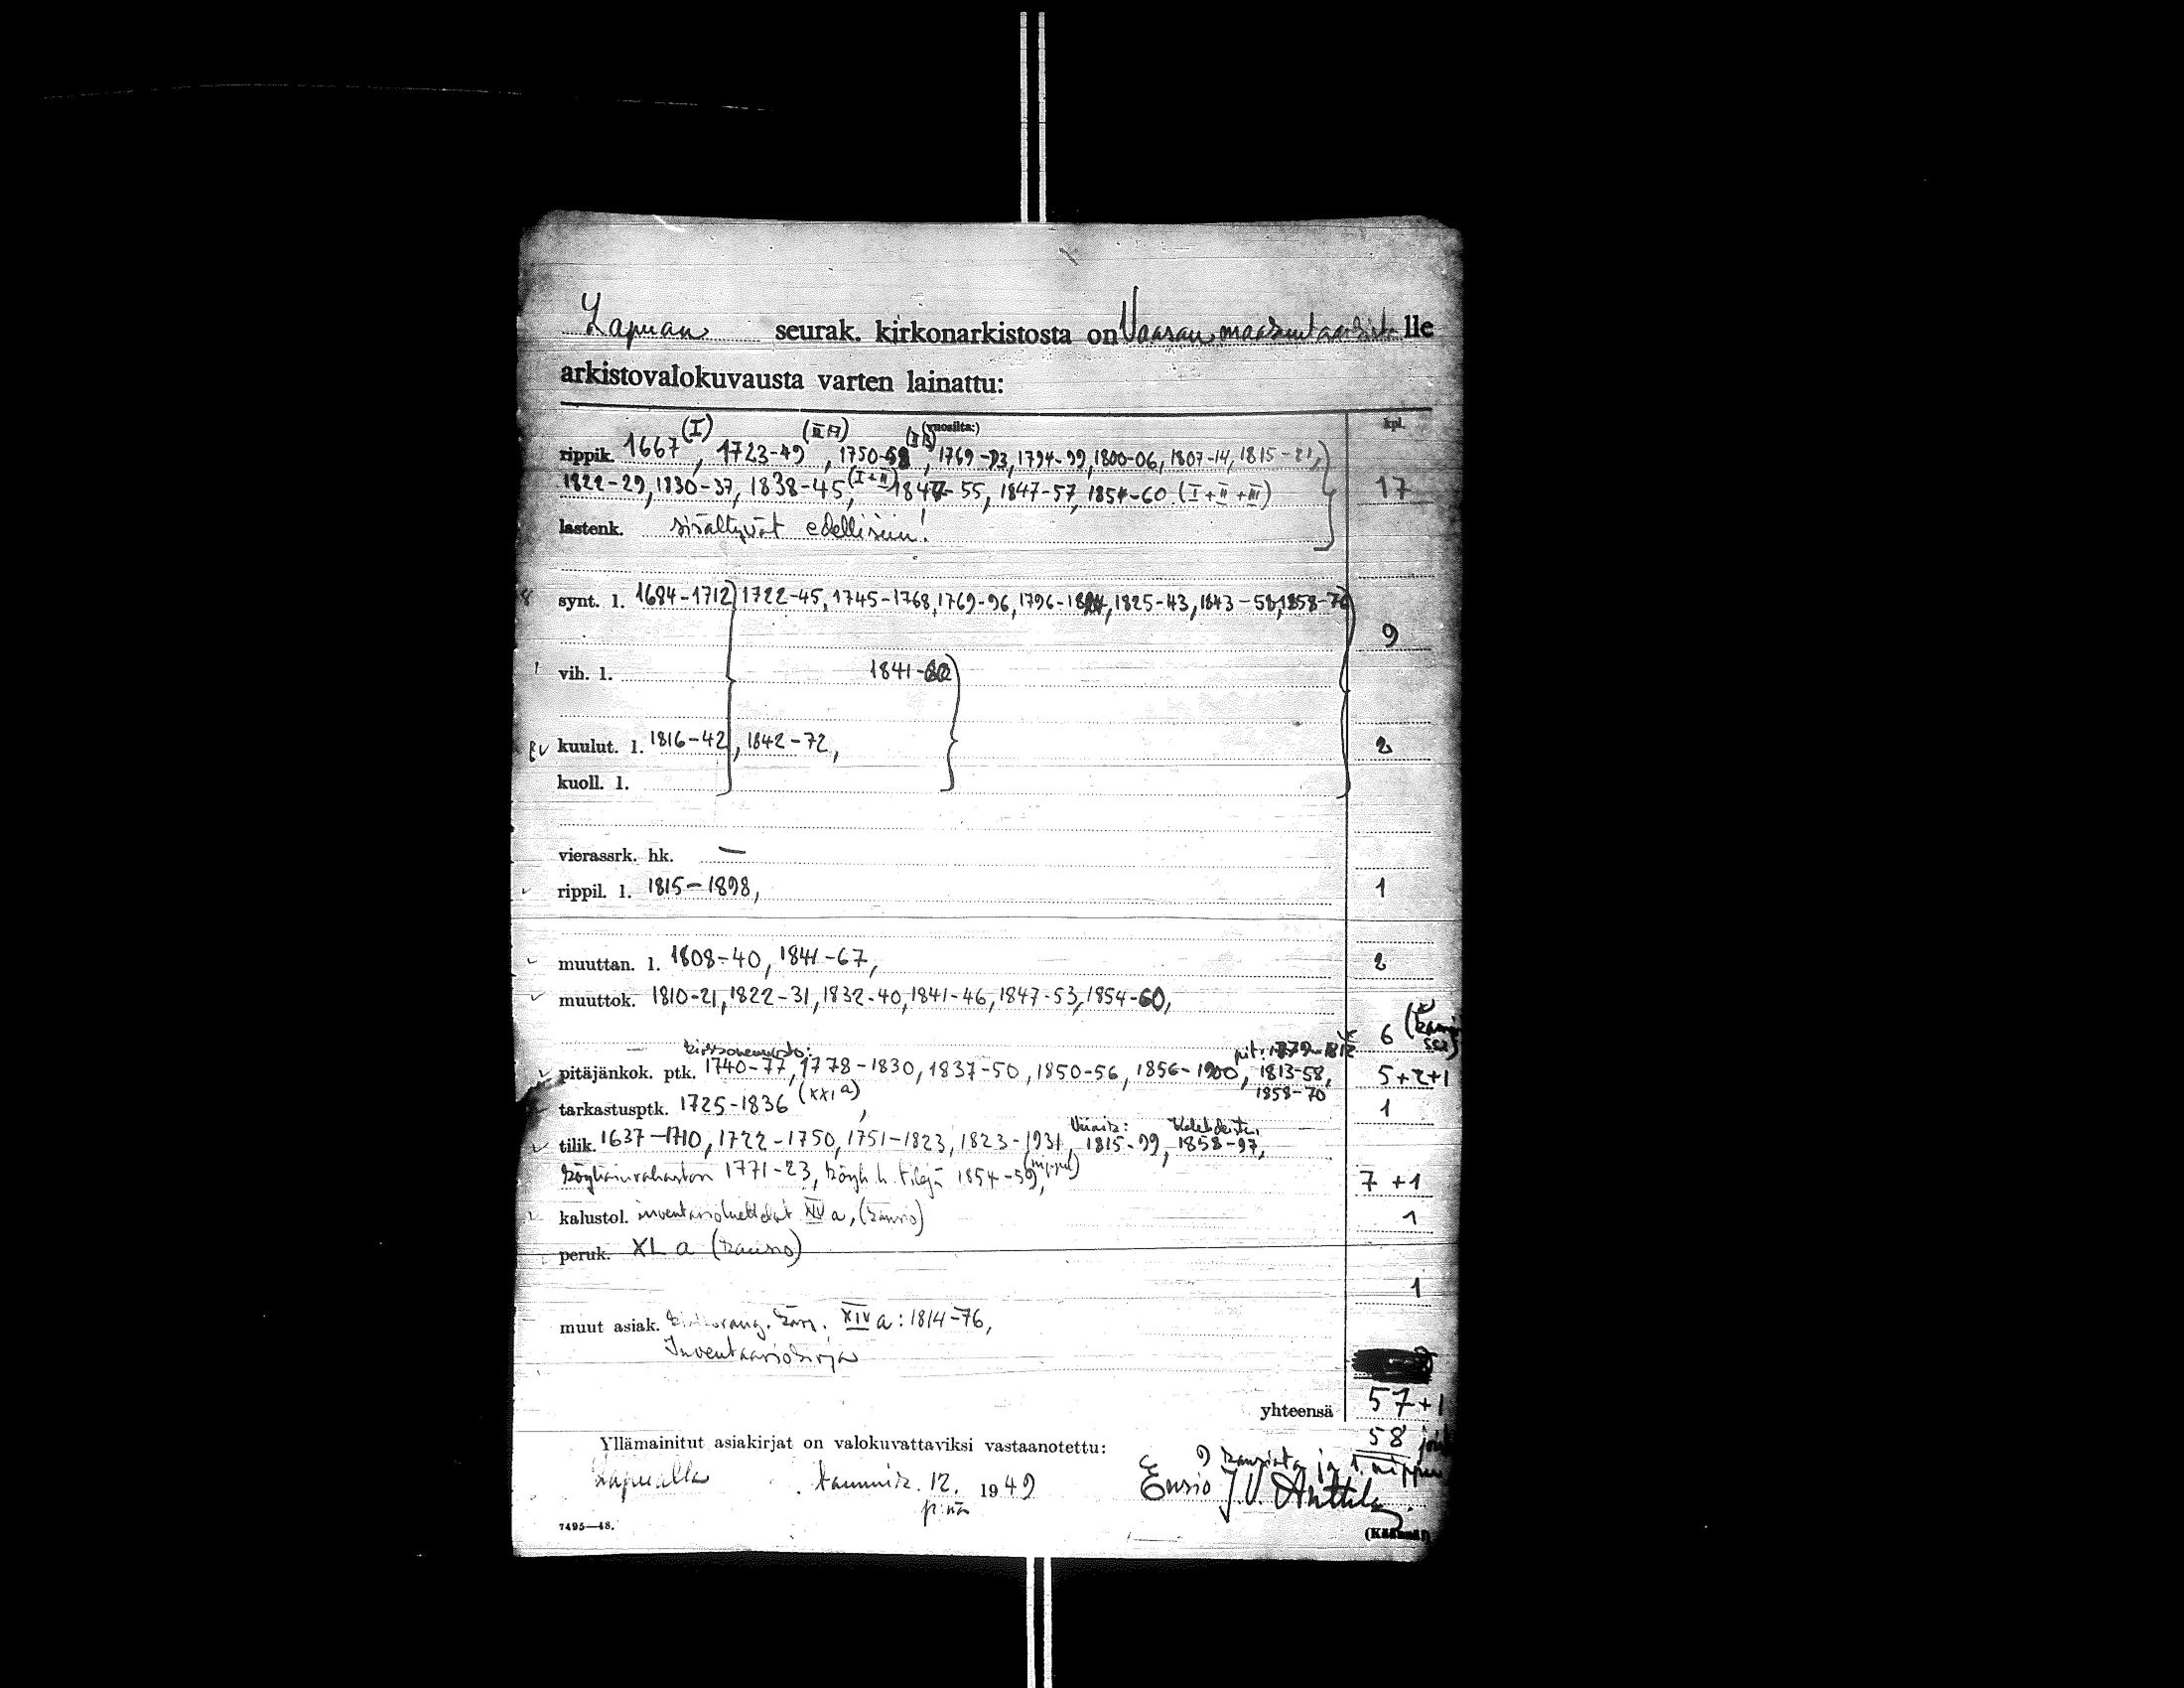 Lapuan seurak. kirkonarkistosta on Vaasan maakunta-arkistolle
arkistovalokuvausta varten lainattu:
(vuosilta:) kpl.
rippik. 1667 (I), 1723-49 (II A), 1750-58 (II B), 1769-93, 1794-99, 1800-06, 1807-14, 1815-21,
1822-29, 1830-37, 1838-45 (I+II), 1847-55, 1847-57, 1854-60 (I+II+III) 17
lastenk. sisältyvät edellisiin!
8 synt. l. 1684-1712, 1722-45, 1745-1768, 1769-96, 1796-1824, 1825-43, 1843-58, 1858-70
9
1 vih. l. 1841-
kuulut. l. 1816-42, 1842-72, 2
kuoll. l.
vierassrk. hk. —
rippil. l. 1815-1898, 1
muuttan. l. 1808-40, 1841-67, 2
muuttok. 1810-21, 1822-31, 1832-40, 1841-46, 1847-53, 1854-60,
6
pit: 1779-1812
pitäjänkok. ptk. 1740-77, 1778-1830, 1837-50, 1850-56, 1856-1900, 1813-58, 5+2+1
1858-70
tarkastusptk. 1725-1836 (XXI a), 1
tilik. 1637-1710, 1722-1750, 1751-1823, 1823-1931, 1815-99, 1858-97,
köyhäinrahaston 1771-23, köyh.h. tilejä 1854-59, (nippu) 7+1
kalustol. inventarioluettelot XIV a, (kansio) 1
peruk. XL a (kansio)
1
muut asiak. XIV a: 1814-76,
Inventaariokirja
yhteensä 57+1
58
Yllämainitut asiakirjat on valokuvattaviksi vastaanotettu:
9 kansiota ja 1 nippu
Lapualla, tammik. 12. p:nä 1949 Ensio J.V. Anttila
7495—48. (Käännä!)